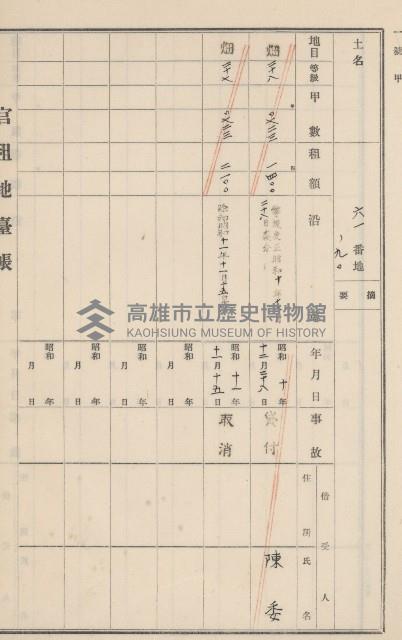 號
甲
土名
六一番地
ノ九〇
摘要
地目
等級
甲數
租額
沿
年月日
事故
借受人
住所
氏名
畑
一四〇〇
昭和十年
十二月二十八日
貸付
陳委
畑
二一〇〇
昭和十一年十一月十五日
昭和十一年
十一月十五日
取消
昭和年
月日
昭和年
月日
昭和年
月日
昭和年
月日
官租地臺帳
高雄市立歷史博物館
KAOHSIUNG MUSEUM OF HISTORY